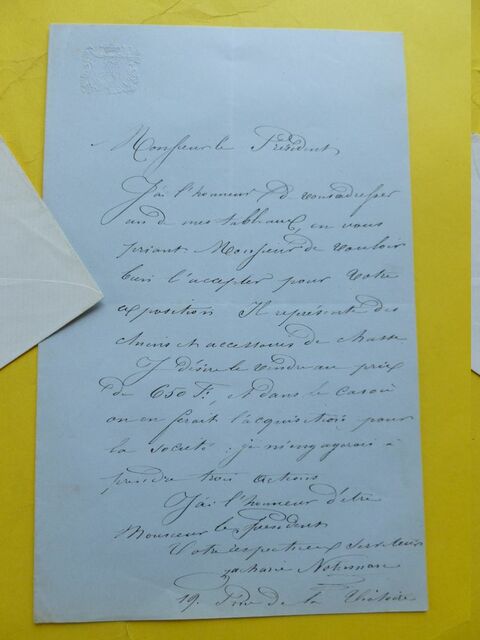 Monsieur le Président
J'ai l'honneur d vous adresser
un d mes tableaux, en vous
priant Monsieur de vouloir
bien l'accepter pour votre
exposition Il représente des
chiens et accessoires de chasse
J désire le vendre au prix
de 650 F; et dans le cas où
on en ferait l'acquisition pour
la société; je m'engagerais à
prendre trois actions
J'ai l'honneur d'être
Monsieur le Président
Votre respectueux serviteur
Zacharie Noterman
19. Rue de la Victoire